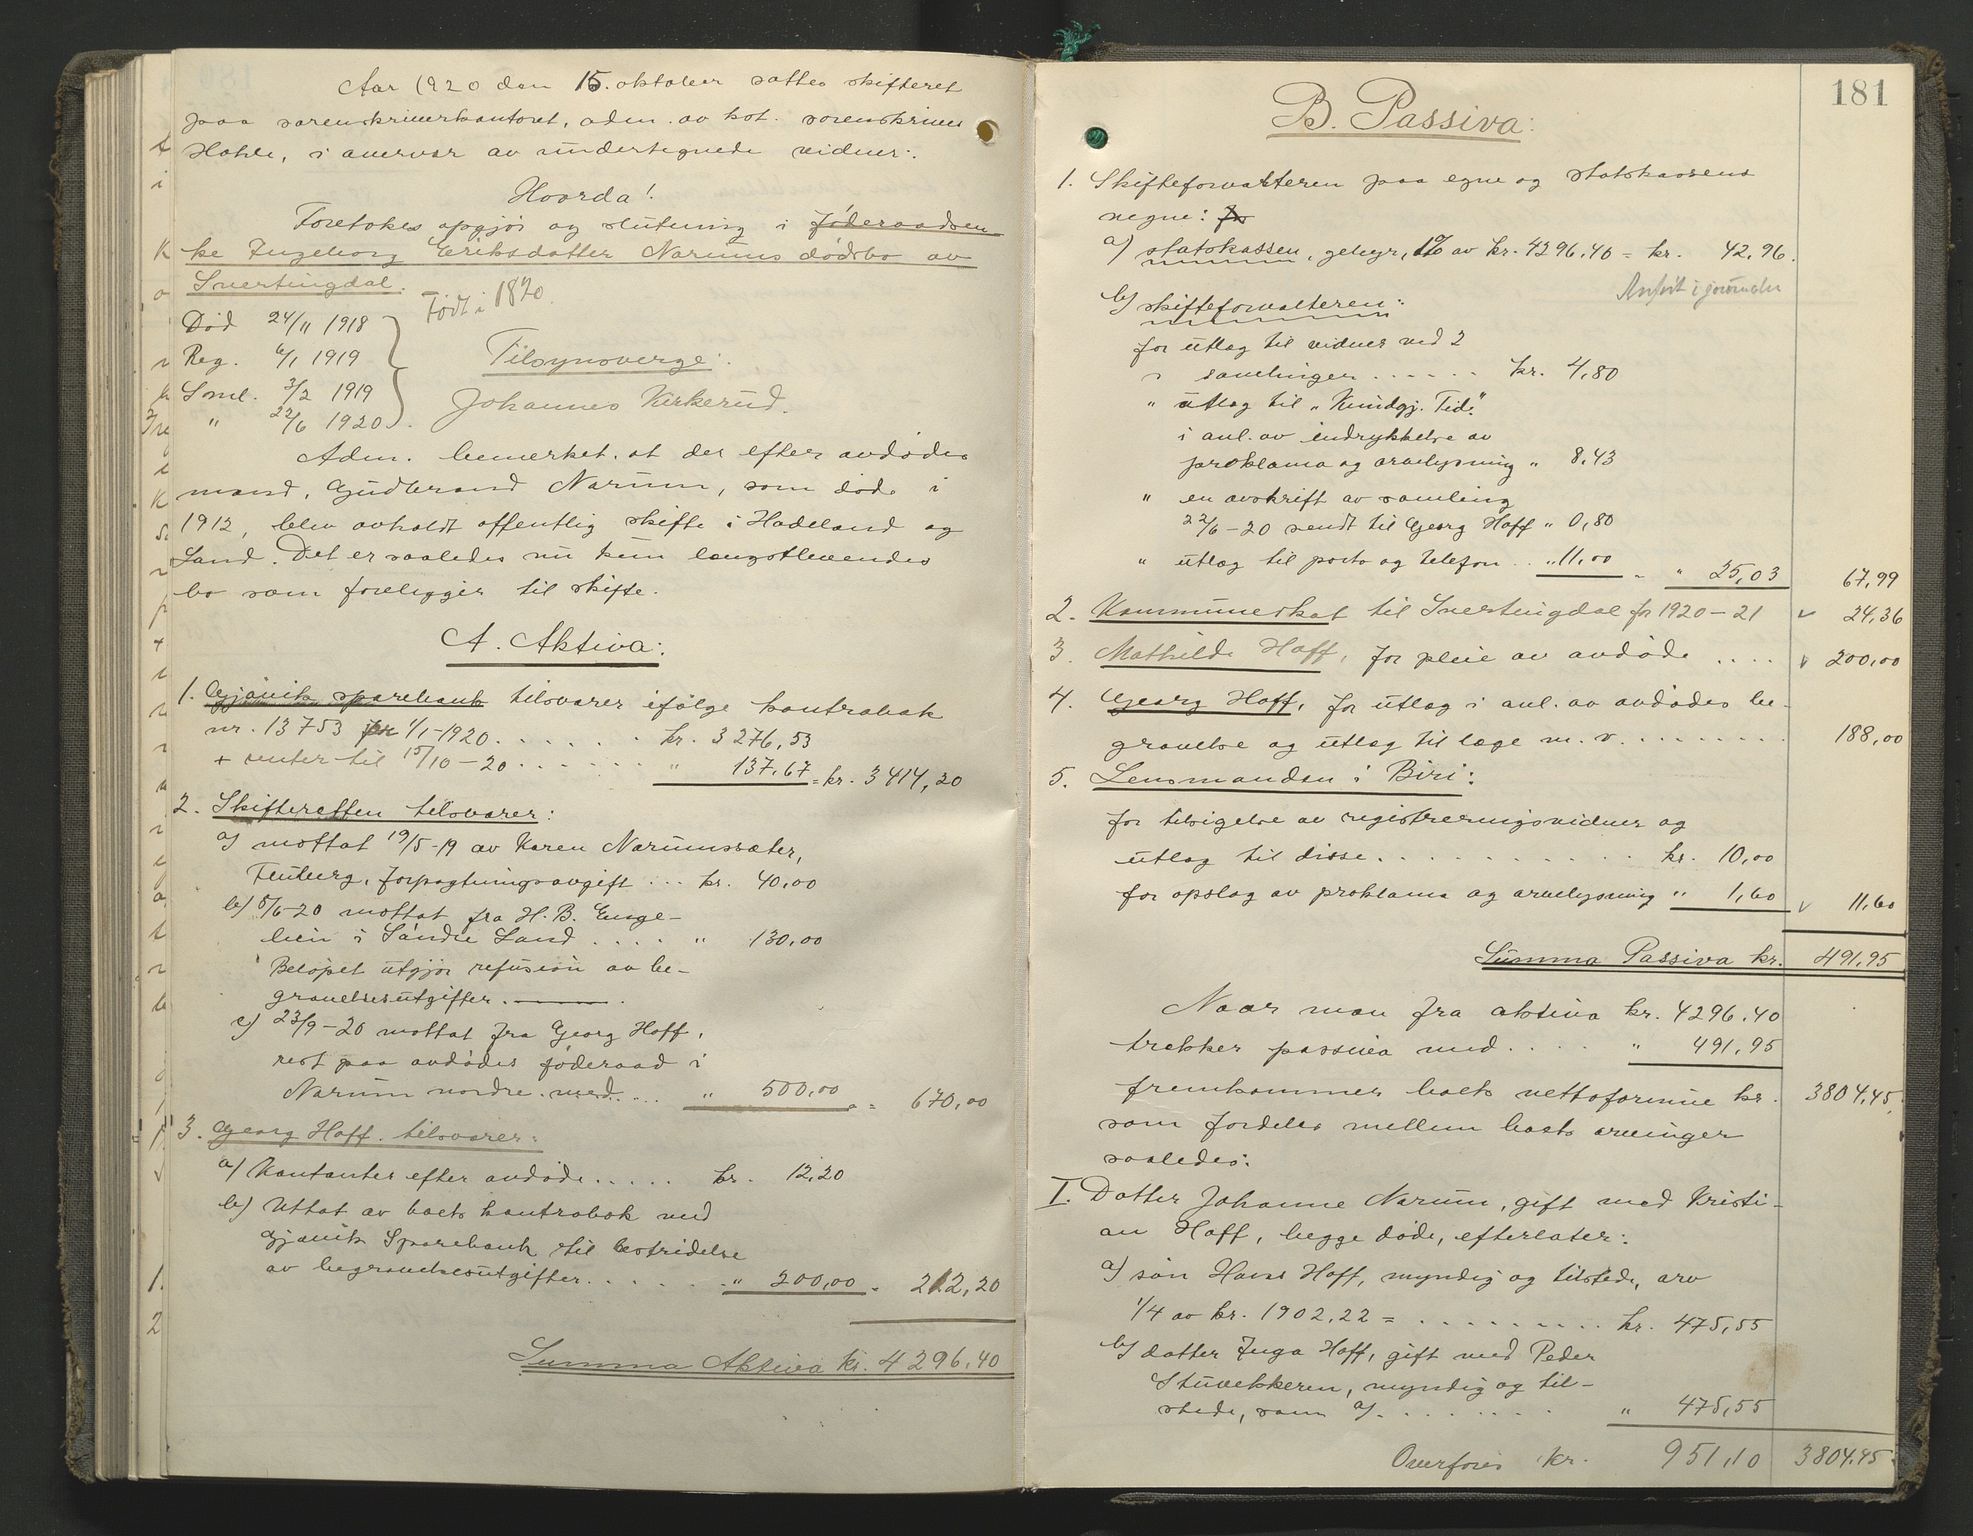 Aar 1920 den 15. oktober sattes skifteret
paa sorenskriverkontoret, adm. av kst. sorenskriver
Hohle, i overvær av undertegnede vidner:
Hvorda!
Foretokes opgjör og slutning i föderaadsen-
ke Ingeborg Eriksdatter Narums dödsbo av
Snertingdal.
Födt i 1820.
Död 24/11 1918
Reg. 6/1 1919
Saml. 3/2 1919
" 22/6 1920
Tilsynsverge:
Johannes Kirkerud.
Adm. bemerket, at der efter avdödes
mand, Gudbrand Narum, som döde i
1912, blev avholdt offentlig skifte i Hadeland og
Land. Det er saaledes nu kun længstlevendes
bo som foreligger til skifte.
A. Aktiva:
1. Gjövik sparebank tilsvarer ifölge kontrabok
nr. 13753 pr 1/1-1920 . . . . . . kr. 3276,53
+ renter til 15/10-20 . . . . . . " 137,67 = kr. 3414,20
2. Skifteretten tilsvarer:
a) mottat 19/5-19 av Karen Narumssæter,
Fluberg, forpagtningsavgift ... kr. 40,00
b) 5/6-20 mottat fra H. B. Enge-
lien i Söndre Land . . . . " 130,00
Belöpet utgjör refusion av be-
gravelsesutgifter.
c) 23/9-20 mottat fra Georg Hoff,
rest paa avdödes föderaad i
Narum nordre med .... " 500,00 " = 670,00
3. Georg Hoff tilsvarer:
a) Kontanter efter avdöde . . . . . kr. 12,20
b) Uttat av boets kontrabok med
Gjövik Sparebank til bestridelse
av begravelsesutgifter . . . . . . " 200,00 = 212,20
Summa Aktiva kr. 4296,40
181
B. Passiva:
1. Skifteforvalteren paa egne og statskassens
vegne: for
a) statskassen, gebyr, 1% av kr. 4296,40 = kr. 42,96.
Anfört i journalen
b) skifteforvalteren:
for utlæg til vidner ved 2
samlinger . . . . . . kr. 4,80
" utlæg til "Kundgj. Tid."
i anl. av indrykkelse av
proklama og arvelysning " 8,43
" en avskrift av samling
22/6-20 sendt til Georg Hoff " 0,80
" utlæg til porto og telefon . . " 11,00 " " 25,03 67,99
2. Kommuneskat til Snertingdal for 1920-21 v 24,36
3. Mathilde Hoff, for pleie av avdöde .... v 200,00
4. Georg Hoff, for utlæg i anl. av avdödes be-
gravelse og utlæg til læge m. v. . . . . . . . . 188,00
5. Lensmanden i Biri:
for tilsigelse av registreringsvidner og
utlæg til disse . . . . . . . . . . . kr. 10,00
for opslag av proklama og arvelysning " 1,60 v 11,60
Summa Passiva kr. 491,95
Naar man fra aktiva kr. 4296,40
trekker passiva med . . . . " 491,95
fremkommer boets nettoformue kr. 3804,45,
som fordeles mellem boets arvinger
saaledes:
I. Datter Johanne Narum, gift med Kristi-
an Hoff, begge döde, efterlater:
a) sön Hans Hoff, myndig og tilstede, arv
1/4 av kr. 1902,22 = . . . . . . . . . kr. 475,55
b) datter Inga Hoff, gift med Peder
Stuvekkeren, myndig og til-
stede, som a) . . . . . . . " 475,55
Overföres kr. 951,10 3804,45